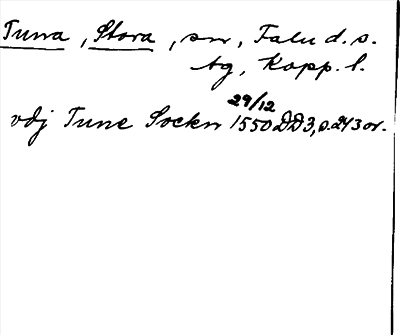 Tuna, Stora, sn, Falu d. s.
tg, Kopp. l.
29/12
vdj Tune Sockn 1550 DD3, s. 243 or.